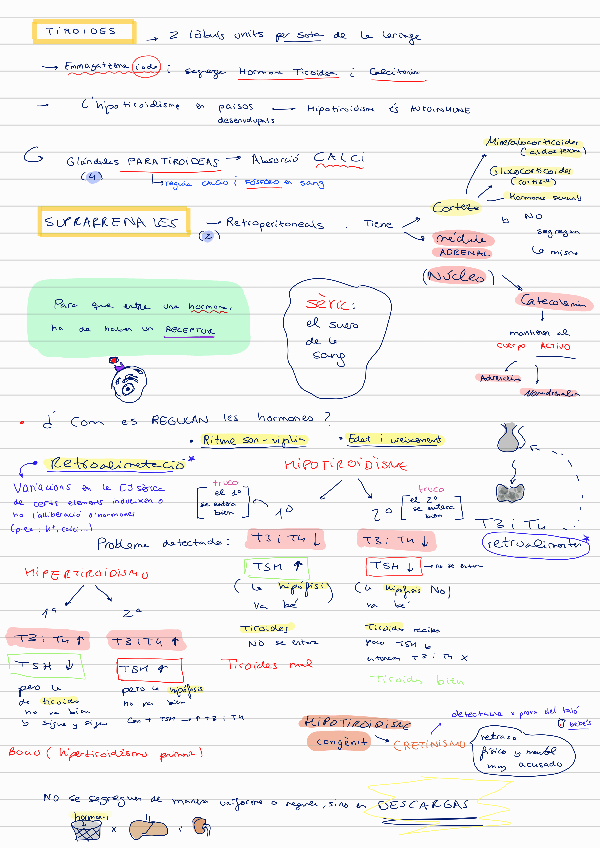 TIROIDES
→ 2 lòbuls units per sota de la laringe
→ Emmagatzema iode i segrega Hormona Tiroidea i Calcitonina
- L'hipotiroïdisme en països desenvolupats — Hipotiroidisme és AUTOINMUNE
Glándules PARATIROIDEAS → Absorció CALCI
(4)
↳ regula CALCIO i FÓSFORO en sang
SUPRARRENALES
(2)
→ Retroperitoneals. Tiene
Corteza
Mineralocorticoides
(aldosterona)
Glucocorticoides
(cortisol)
Hormones sexuals
NO
segregan
lo mismo
médula
ADRENAL
(Núcleo)
Catecolamin
mantienen el
CUERPO ACTIVO
Adrenalina
Noradrenalina
Para que entre una hormona,
ha de haber un RECEPTUR
SÈRIC:
el suero
de la
sang
• ¿ Com es REGULAN les hormones?
• Ritme son-vigilia
• Edat i creixement
Retroalimetació *
Variacions en la [ ] sèrica
de certs elements indueixen o
no l'alliberació d'hormones
HIPOTIROIDISME
truco
el 1º
se entera
bien
1º
2º
truco
el 2º
se entera
bien
T3 i T4
retroalimentan *
Problema detectado:
T3 i T4 ↓
T3 i T4 ↓
TSH ↑
TSH ↓ → no se entera
(la hipófisi)
va bé
(la hipófisis NO)
va bé
Tiroides
NO se entera
Tiroides mal
Tiroides recibe
poco TSH
T3 i T4 X
Tiroides bien
HIPERTIROIDISMO
1ª
2ª
T3 i T4 ↑
T3 i T4 ↑
TSH ↓
TSH ↑
pero la
de tiroides
no va bien
↳ sigue y sigue
pero la hipófisis
no va bien
Con + TSH → ↑ T3 i T4
BOCIO (hipertiroidismo primari)
HIPOTIROIDISME
congènit
→ CRETINISMO
detectable x prova del taló
bebés
retraso
físico y mental
muy acusado
No se segreguen de manera uniforme o regular, sino en DESCARGAS
hormones